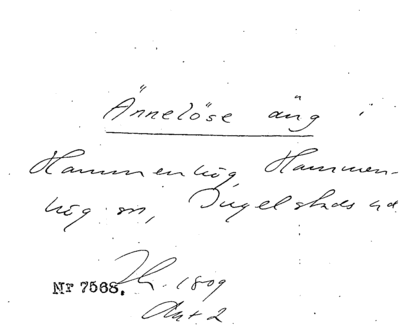 Ännelöse äng i
Hammenhög Hammen-
hög sn, Ingelstads hd
Nr 7568. Jb. 1809
Akt 2